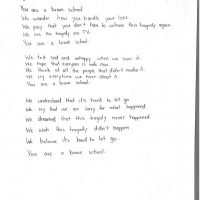 You are a brave school
We wonder how you handle your loss.
We pray that you don't have to witness this tragedy again.
We see the tragedy on TV.
You are a brave school.
We felt sad and unhappy when we saw it.
We hope that everyone is safe now
We think of all the people that didn't make it.
We cry everytime we hear about it.
You are a brave school.
We understand that it's hard to let go
We say that we are sorry for what happened.
We dreamed that this tragedy never happened.
We wish this tragedy didn't happen
We believe it's hard to let go.
You are a brave school.